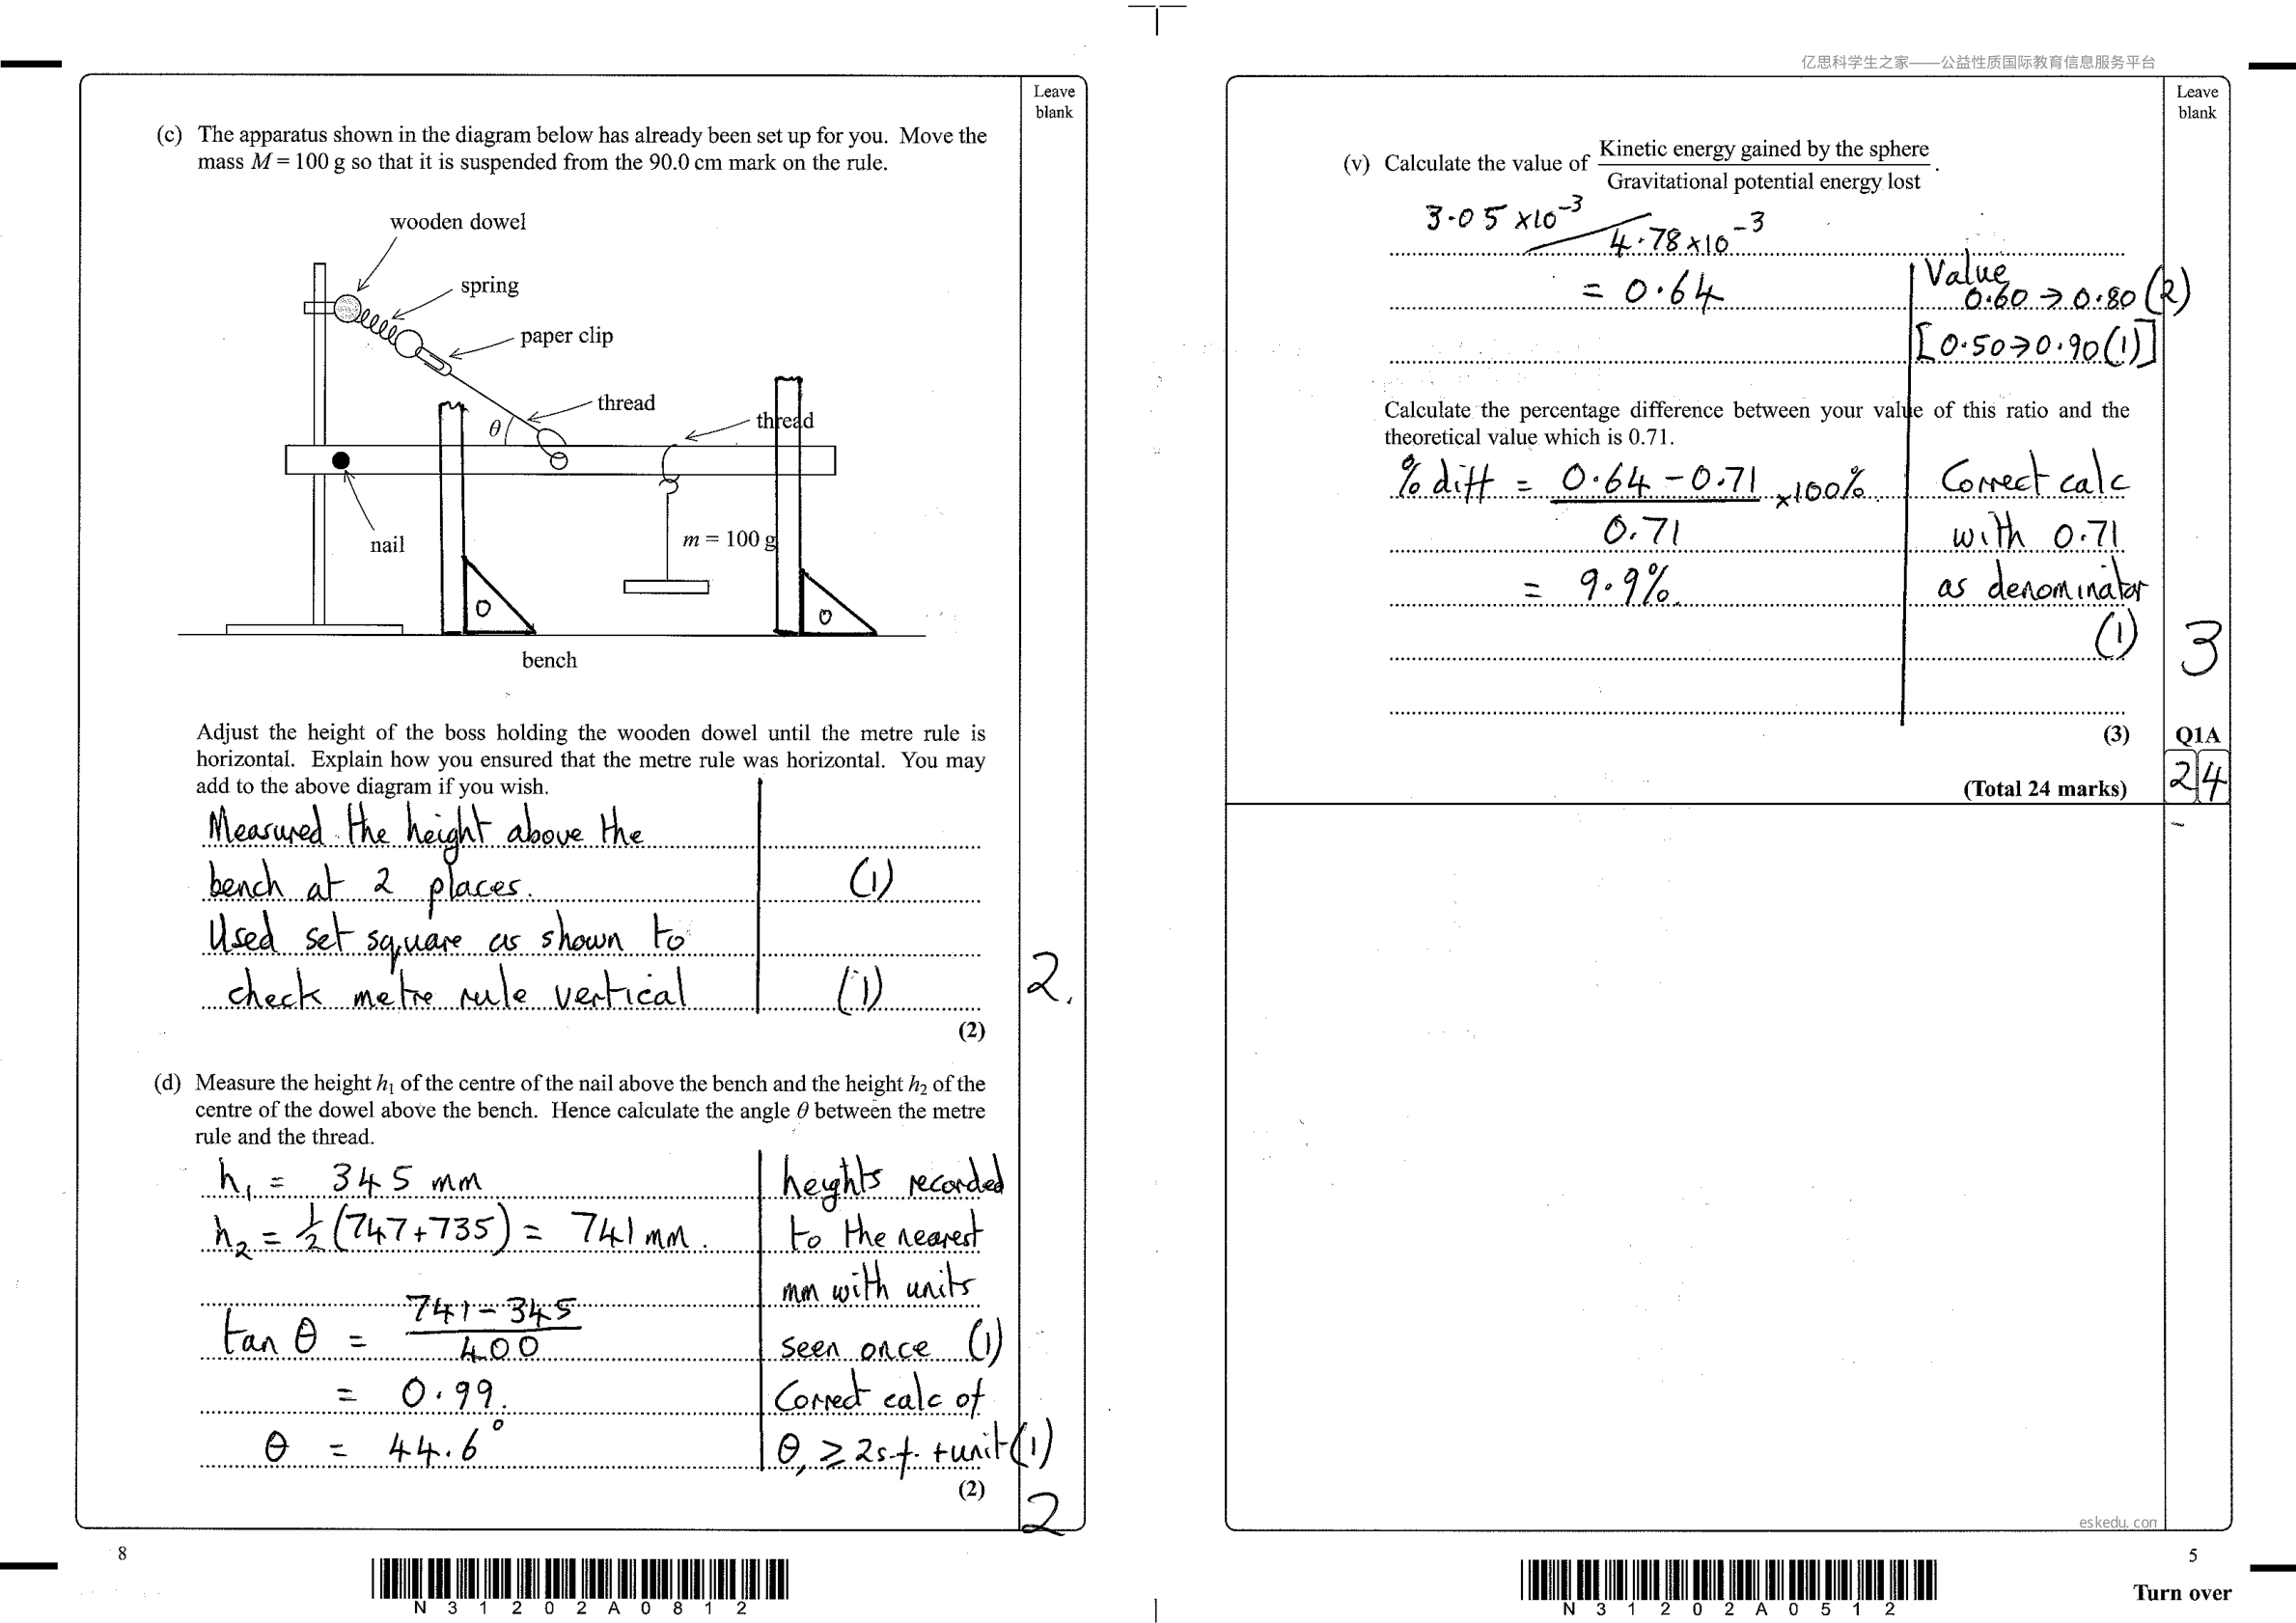 Leave
blank
(c) The apparatus shown in the diagram below has already been set up for you. Move the
mass M = 100 g so that it is suspended from the 90.0 cm mark on the rule.
wooden dowel
spring
paper clip
thread
thread
θ
nail
m = 100 g
0
0
bench
Adjust the height of the boss holding the wooden dowel until the metre rule is
horizontal. Explain how you ensured that the metre rule was horizontal. You may
add to the above diagram if you wish.
Measured the height above the
bench at 2 places. (1)
Used set square as shown to
check metre rule vertical (1)
2.
(2)
(d) Measure the height h₁ of the centre of the nail above the bench and the height h₂ of the
centre of the dowel above the bench. Hence calculate the angle θ between the metre
rule and the thread.
h₁ = 345 mm
h₂ = ½ (747+735) = 741 mm.
tan θ = 741 - 345 / 400
= 0.99.
θ = 44.6°
heights recorded
to the nearest
mm with units
seen once (1)
Correct calc of
θ, ≥ 2s.f. + unit (1)
(2)
2
8
N31202A0812
亿思科学生之家——公益性质国际教育信息服务平台
Leave
blank
(v) Calculate the value of Kinetic energy gained by the sphere / Gravitational potential energy lost .
3.05 ×10⁻³ / 4.78×10⁻³
= 0.64
Value
0.60 → 0.80 (2)
[0.50→0.90 (1)]
Calculate the percentage difference between your value of this ratio and the
theoretical value which is 0.71.
% diff = 0.64 - 0.71 / 0.71 ×100%
= 9.9%.
Correct calc
with 0.71
as denominator
(1)
3
(3)
Q1A
(Total 24 marks)
24
eskedu.com
5
N31202A0512
Turn over